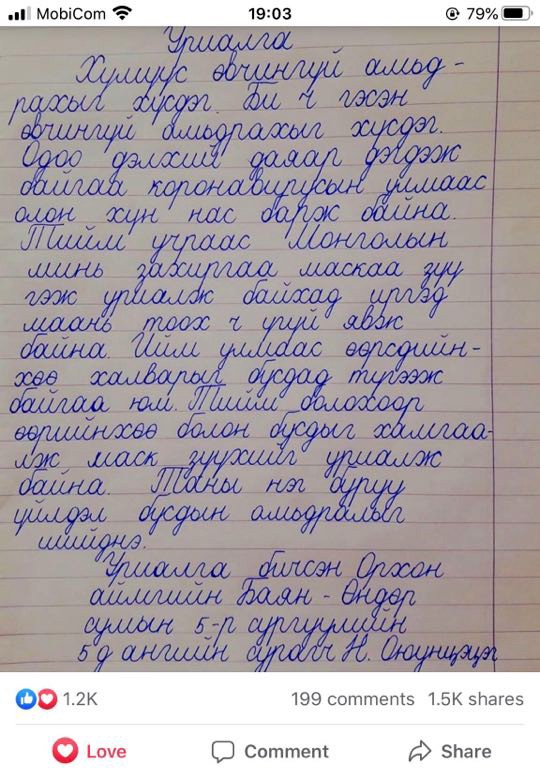 MobiCom
19:03
79%
Уриалга
Хүмүүс өвчингүй амьд-
рахыг хүсдэг. Би ч гэсэн
өвчингүй амьдрахыг хүсдэг.
Одоо дэлхий даяар дэгдээж
байгаа коронавирусын улмаас
олон хүн нас барж байна.
Тийм учраас Монголын
минь захиргаа маскаа зүү
гэж уриалж байхад иргэд
маань тоох ч үгүй явж
байна. Ийм улмаас өөрсдийн-
хөө халварыг бусдад түгээж
байгаа юм. Тийм болохоор
өөрийнхөө болон бусдыг хамгаа-
лж маск зүүхийг уриалж
байна. Таны нэг буруу
үйлдэл бусдын амьдралыг
шийднэ.
Уриалга бичсэн Орхон
аймгийн Баян-Өндөр
сумын 5-р сургуулийн
5д ангийн сурагч Н. Оюунцэцэг
1.2K 199 comments 1.5K shares
Love Comment Share